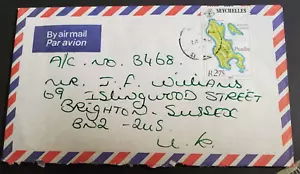 By air mail
Par avion
SEYCHELLES
Praslin
R2.75
A/C. NO. B468.
MR. J.F. WILLIAMS
69 ISLINGWOOD STREET
BRIGHTON - SUSSEX
BN2 - 2US
U.K.